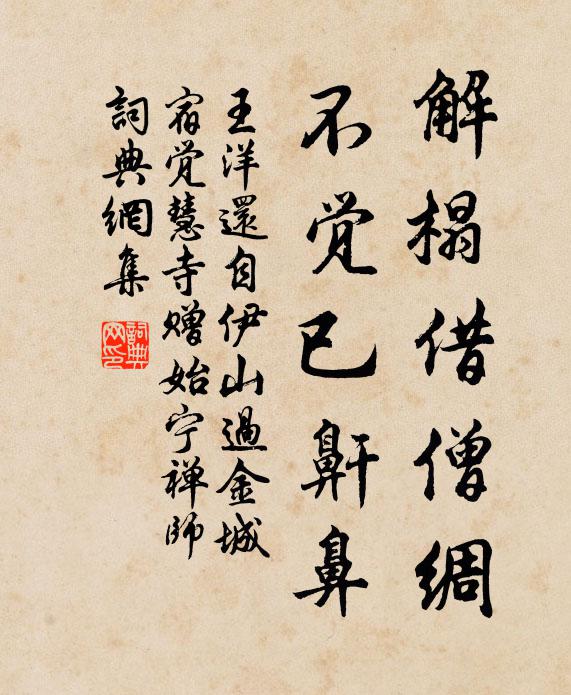 解榻借僧綢
不觉已鼾鼻
王洋還自伊山過金城
宿觉慧寺赠始宁禅師
詞典網集
詞典网印